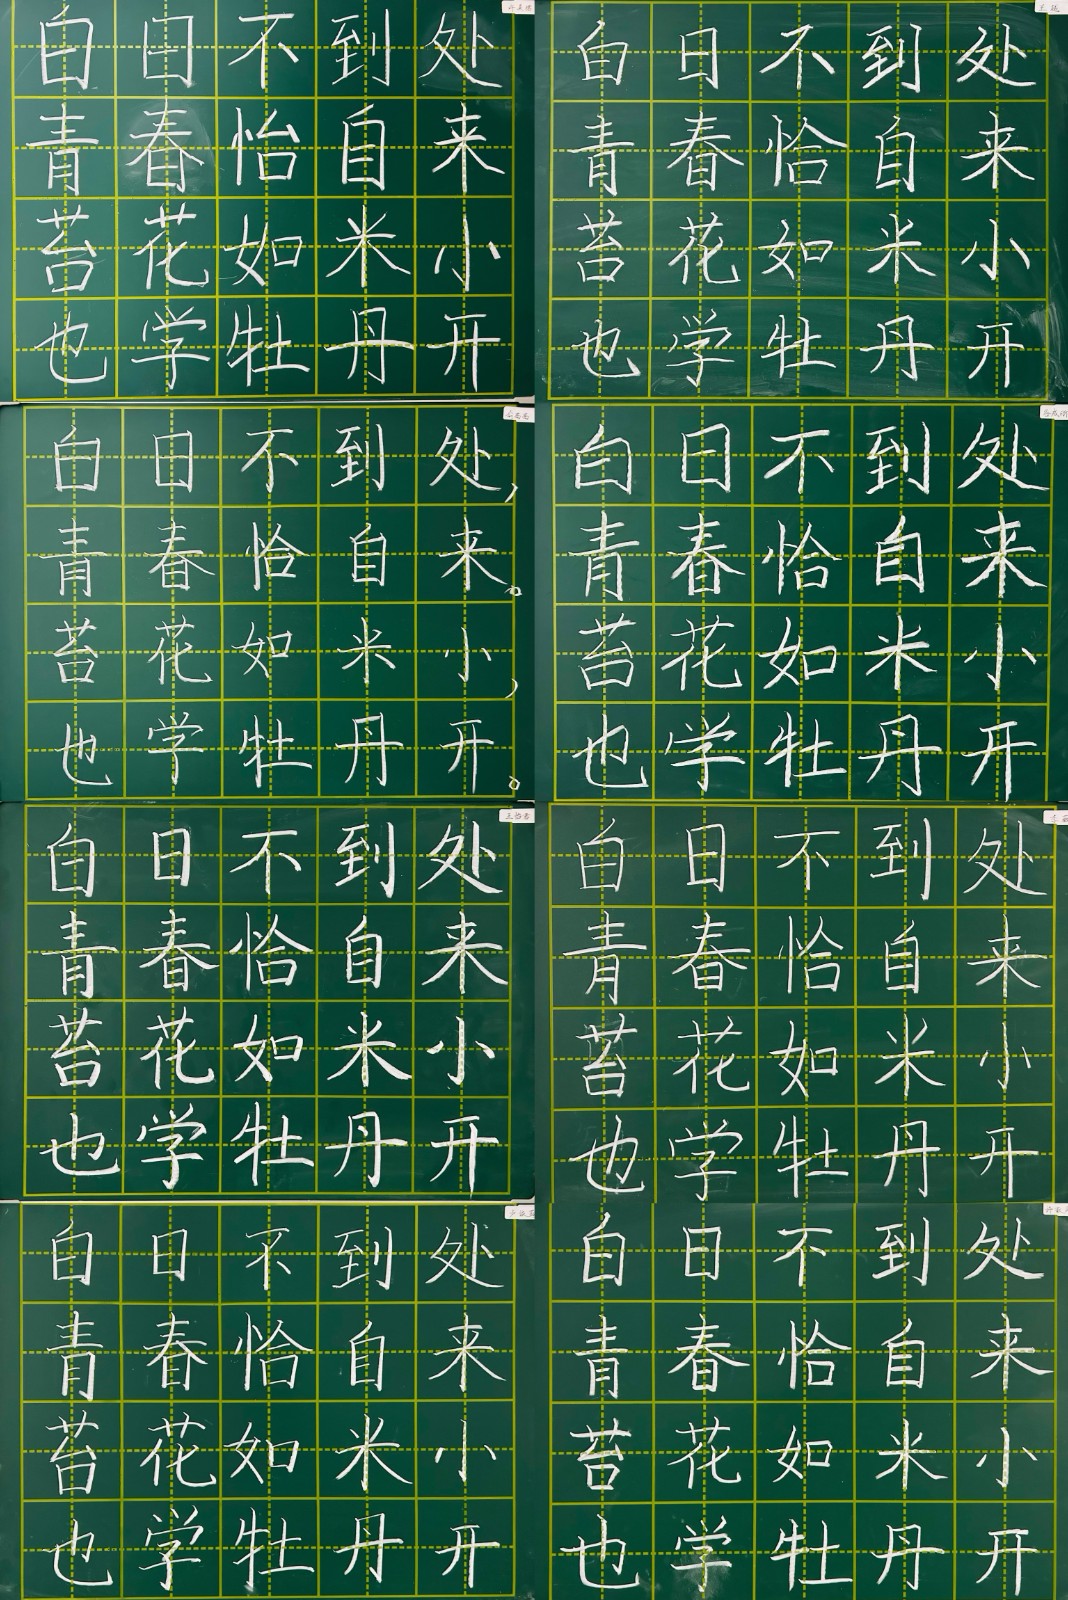 白日不到处
青春怡自来
苔花如米小
也学牡丹开
白日不到处
青春恰自来
苔花如米小
也学牡丹开
白日不到处，
青春恰自来。
苔花如米小，
也学牡丹开。
白日不到处
青春恰自来
苔花如米小
也学牡丹开
白日不到处
青春恰自来
苔花如米小
也学牡丹开
白日不到处
青春恰自来
苔花如米小
也学牡丹开
白日不到处
青春恰自来
苔花如米小
也学牡丹开
白日不到处
青春恰自来
苔花如米小
也学牡丹开